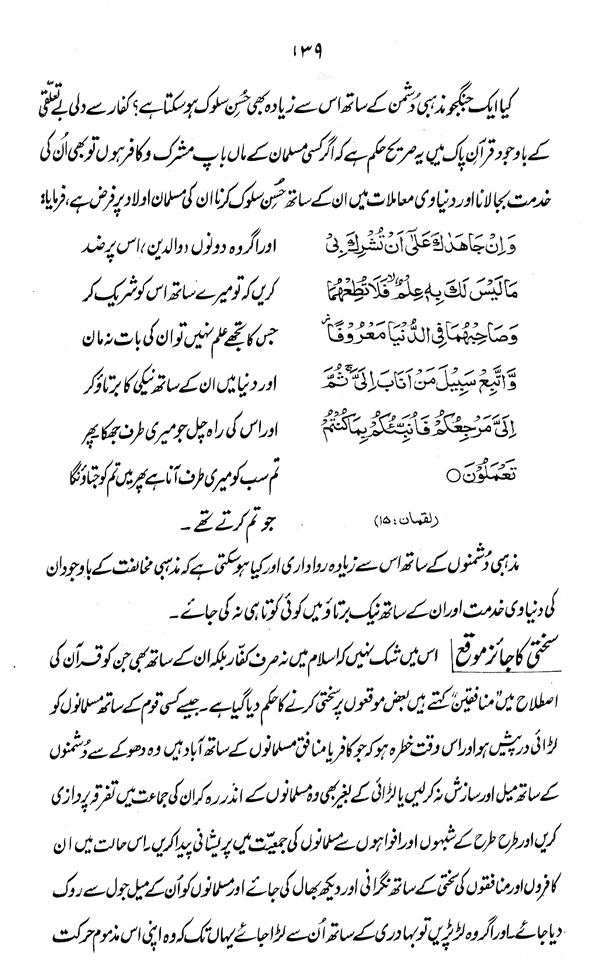 ۱۳۹
کیا ایک جنگجو مذہبی دُشمن کے ساتھ اس سے زیادہ بھی حُسنِ سلوک ہو سکتا ہے؟ کفار سے دلی بے تعلقی
کے باوجود قرآن پاک میں یہ صریح حکم ہے کہ اگر کسی مسلمان کے ماں باپ مشرک و کافر ہوں تو بھی اُن کی
خدمت بجا لانا اور دنیاوی معاملات میں ان کے ساتھ حُسن سلوک کرنا ان کی مسلمان اولاد پر فرض ہے، فرمایا:
وَاِنْ جَاهَدٰكَ عَلٰٓى اَنْ تُشْرِكَ بِيْ
مَا لَيْسَ لَكَ بِهٖ عِلْمٌ ۙ فَلَا تُطِعْهُمَا
وَصَاحِبْهُمَا فِي الدُّنْيَا مَعْرُوْفًا ۡ
وَّاتَّبِعْ سَبِيْلَ مَنْ اَنَابَ اِلَيَّ ۚ ثُمَّ
اِلَيَّ مَرْجِعُكُمْ فَاُنَبِّئُكُمْ بِمَا كُنْتُمْ
تَعْمَلُوْنَ ○
(لقمان: ۱۵)
اور اگر وہ دونوں (والدین) اس پر ضد
کریں کہ تو میرے ساتھ اس کو شریک کر
جس کا تجھے علم نہیں تو ان کی بات نہ مان
اور دنیا میں ان کے ساتھ نیکی کا برتاؤ کر
اور اس کی راہ چل جو میری طرف جھکا پھر
تم سب کو میری طرف آنا ہے پھر میں تم کو جتاؤنگا
جو تم کرتے تھے۔
مذہبی دُشمنوں کے ساتھ اس سے زیادہ رواداری اور کیا ہو سکتی ہے کہ مذہبی مخالفت کے باوجود ان
کی دنیاوی خدمت اور ان کے ساتھ نیک برتاؤ میں کوئی کوتاہی نہ کی جائے۔
سختی کا جائز موقع اس میں شک نہیں کہ اسلام میں نہ صرف کفّار بلکہ ان کے ساتھ بھی جن کو قرآن کی
اصطلاح میں "منافقین" کہتے ہیں بعض موقعوں پر سختی کرنے کا حکم دیا گیا ہے۔ جیسے کسی قوم کے ساتھ مسلمانوں کو
لڑائی درپیش ہو اور اس وقت خطرہ ہو کہ جو کافر یا منافق مسلمانوں کے ساتھ آباد ہیں وہ دھوکے سے دُشمنوں
کے ساتھ میل اور سازش نہ کر لیں یا لڑائی کے بغیر بھی وہ مسلمانوں کے اندر رہ کر ان کی جماعت میں تفرقہ پردازی
کریں اور طرح طرح کے شبہوں اور افواہوں سے مسلمانوں کی جمعیّت میں پریشانی پیدا کریں۔ اس حالت میں ان
کافروں اور منافقوں کی سختی کے ساتھ نگرانی اور دیکھ بھال کی جائے اور مسلمانوں کو اُن کے میل جول سے روک
دیا جائے۔ اور اگر وہ لڑ پڑیں تو بہادری کے ساتھ اُن سے لڑا جائے یہاں تک کہ وہ اپنی اس مذموم حرکت